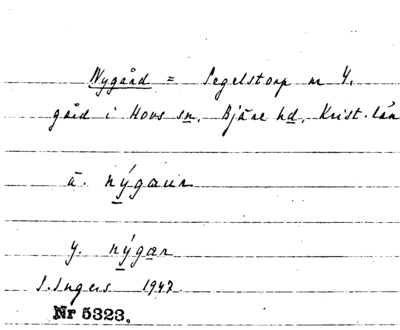 Nygård = Segelstorp nr 4.
gård i Hovs sn. Bjäre hd. Krist. län
ä. nýgaun
y. nýgæn
I. Ingers 1947.
Nr 5323.